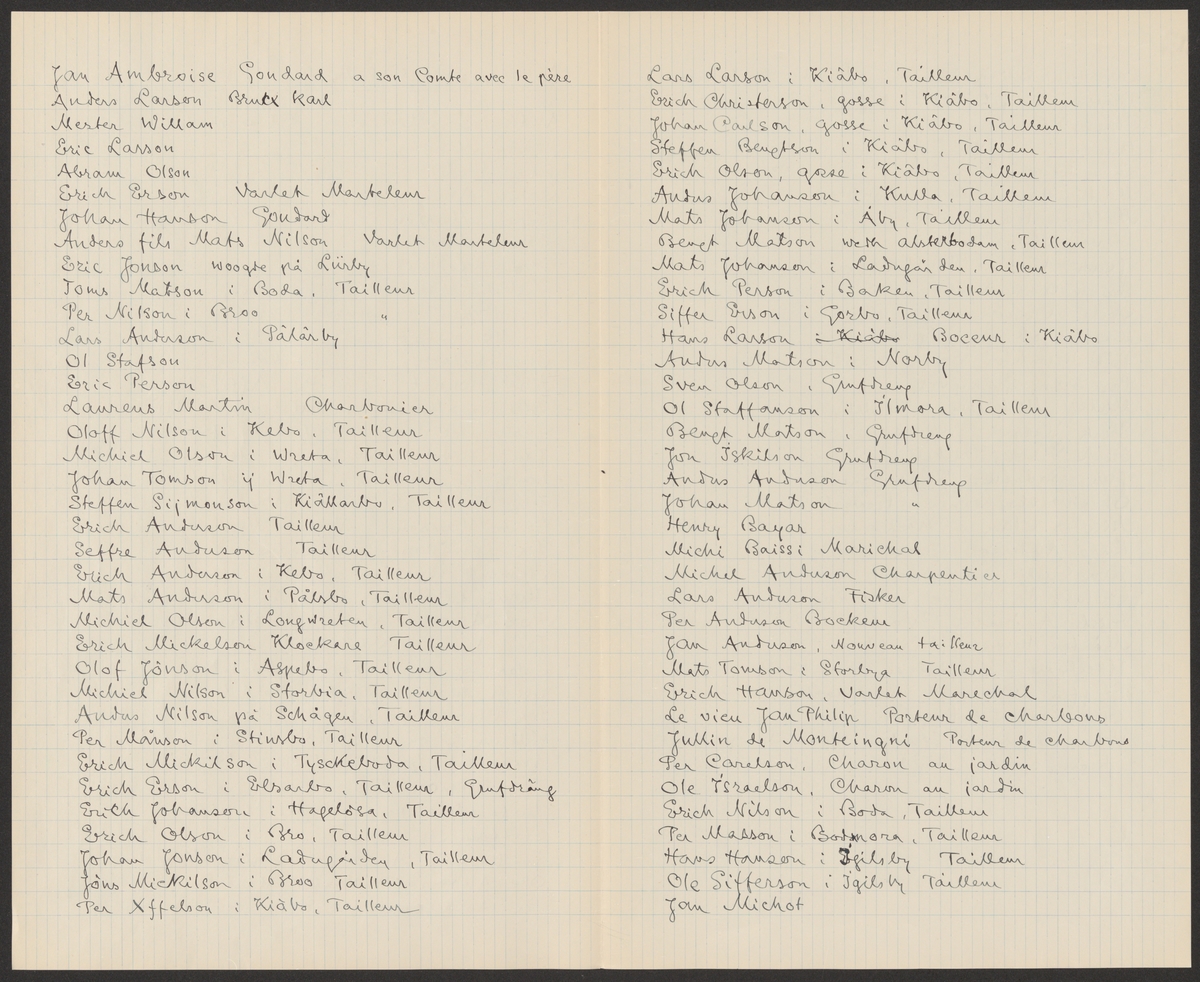 Jan Ambroise Gondard a son Comte avec le père
Anders Larson Bruck Karl
Mester Willam
Eric Larson
Abram Olson
Erich Erson Varlet Marteleur
Johan Hanson Gondard
Anders fils Mats Nilson Varlet Marteleur
Eric Jonson woogde på Lürby
Toms Matson i Boda, Tailleur
Per Nilson i Broo "
Lars Anderson i Pålärby
Ol Stafson
Eric Person
Laurens Martin Charbonier
Oloff Nilson i Kebo, Tailleur
Michiel Olson i Wreta, Tailleur
Johan Tomson ij Wreta, Tailleur
Steffen Sijmonson i Kiällarbo, Tailleur
Erich Anderson Tailleur
Seffre Anderson Tailleur
Erich Anderson i Kebo, Tailleur
Mats Anderson i Pålsbo, Tailleur
Michiel Olson i Longwreten, Tailleur
Erich Mickelson Klockare Tailleur
Olof Jönson i Aspebo, Tailleur
Michiel Nilson i Storbia, Tailleur
Anders Nilson på Schågen, Tailleur
Per Månson i Stinsbo, Tailleur
Erich Mickilson i Tyskeboda, Tailleur
Erich Erson i Elsarbo, Tailleur, Grufdräng
Erich Johanson i Hagelösa, Tailleur
Erich Olson i Bro, Tailleur
Johan Jonson i Ladugården, Tailleur
Jöns Mickilson i Broo Tailleur
Per Xffelson i Kiäbo, Tailleur
Lars Larson i Kiäbo, Tailleur
Erich Christerson, gosse i Kiäbo, Tailleur
Johan Carlson, gosse i Kiäbo, Tailleur
Steffen Bengtson i Kiäbo, Tailleur
Erich Olson, gosse i Kiäbo, Tailleur
Anders Johanson i Kulla, Tailleur
Mats Johanson i Åby, Tailleur
Bengt Matson weth alsterbodam, Tailleur
Mats Johanson i Ladugården, Tailleur
Erich Person i Baken, Tailleur
Siffer Erson i Gorbo, Tailleur
Hans Larson i Kiäbo Boceur i Kiäbo
Anders Matson i Norby
Sven Olson, Grufdreng
Ol Staffanson i Ilmora, Tailleur
Bengt Matson, Grufdreng
Jon Iskilson Grufdreng
Anders Anderson Grufdreng
Johan Matson "
Henry Bayar
Michi Baissi Marichal
Michel Anderson Charpentier
Lars Anderson Fisker
Per Anderson Bockeur
Jan Anderson, Nouveau tailleur
Mats Tomson i Storbya Tailleur
Erich Hanson, Varlet Marechal
Le vieu Jan Philip Porteur de charbons
Jullin de Monteingni Porteur de charbons
Per Carelson, Charon au jardin
Ole Israelson, Charon au jardin
Erich Nilson i Boda, Tailleur
Per Masson i Bodmora, Tailleur
Hans Hanson i Igilsby Tailleur
Ole Sifferson i Igilsby Tailleur
Jan Michot